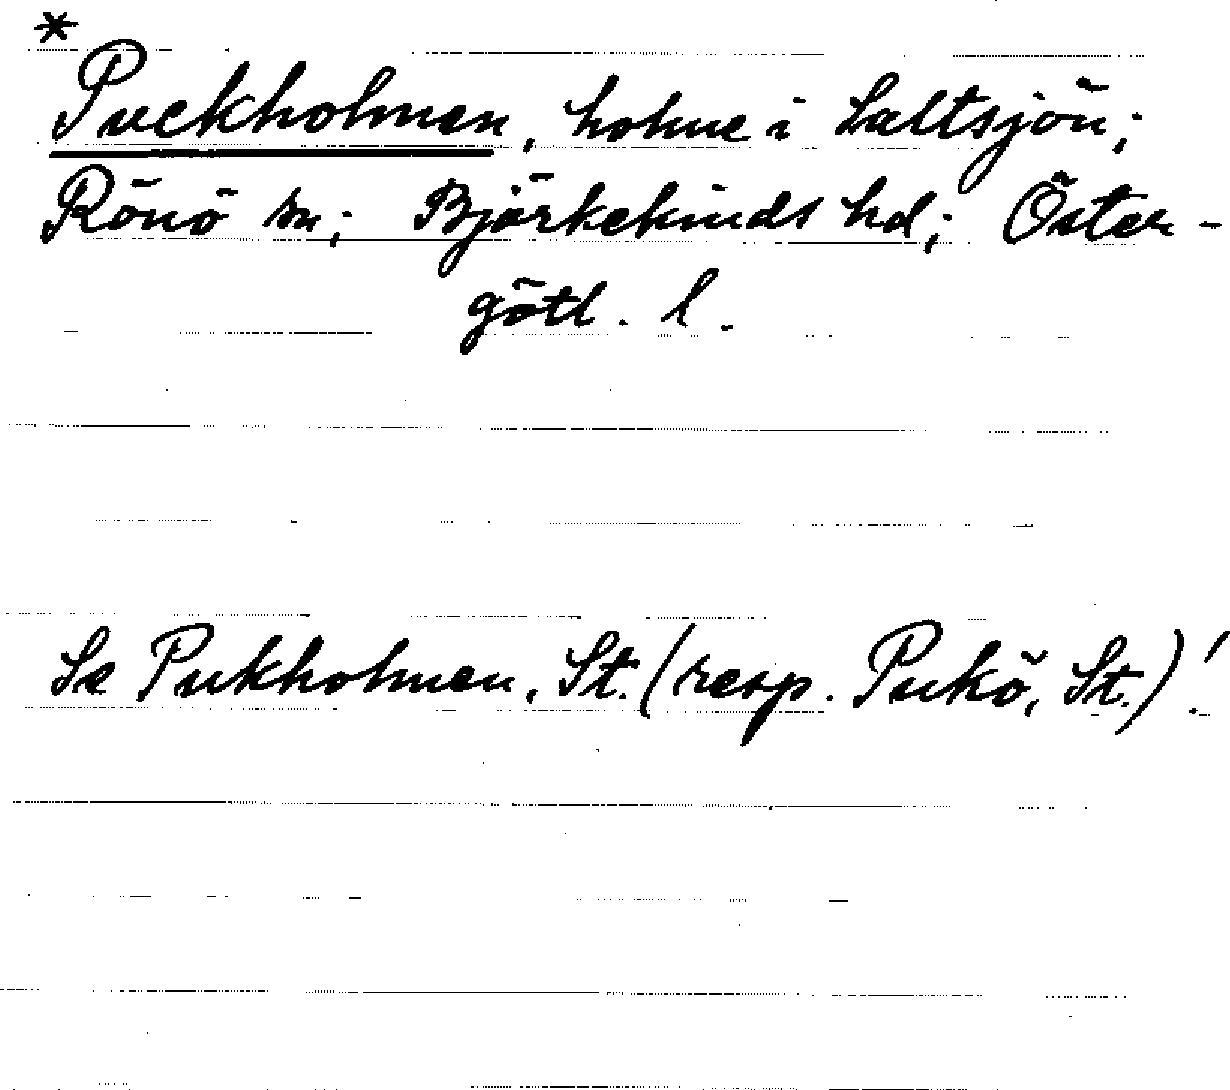 *
Puckholmen, holme i Saltsjön;
Rönö sn; Björkekinds hd; Öster-
götl. l.
Se Pukholmen, St. (resp. Pukö, St.)!